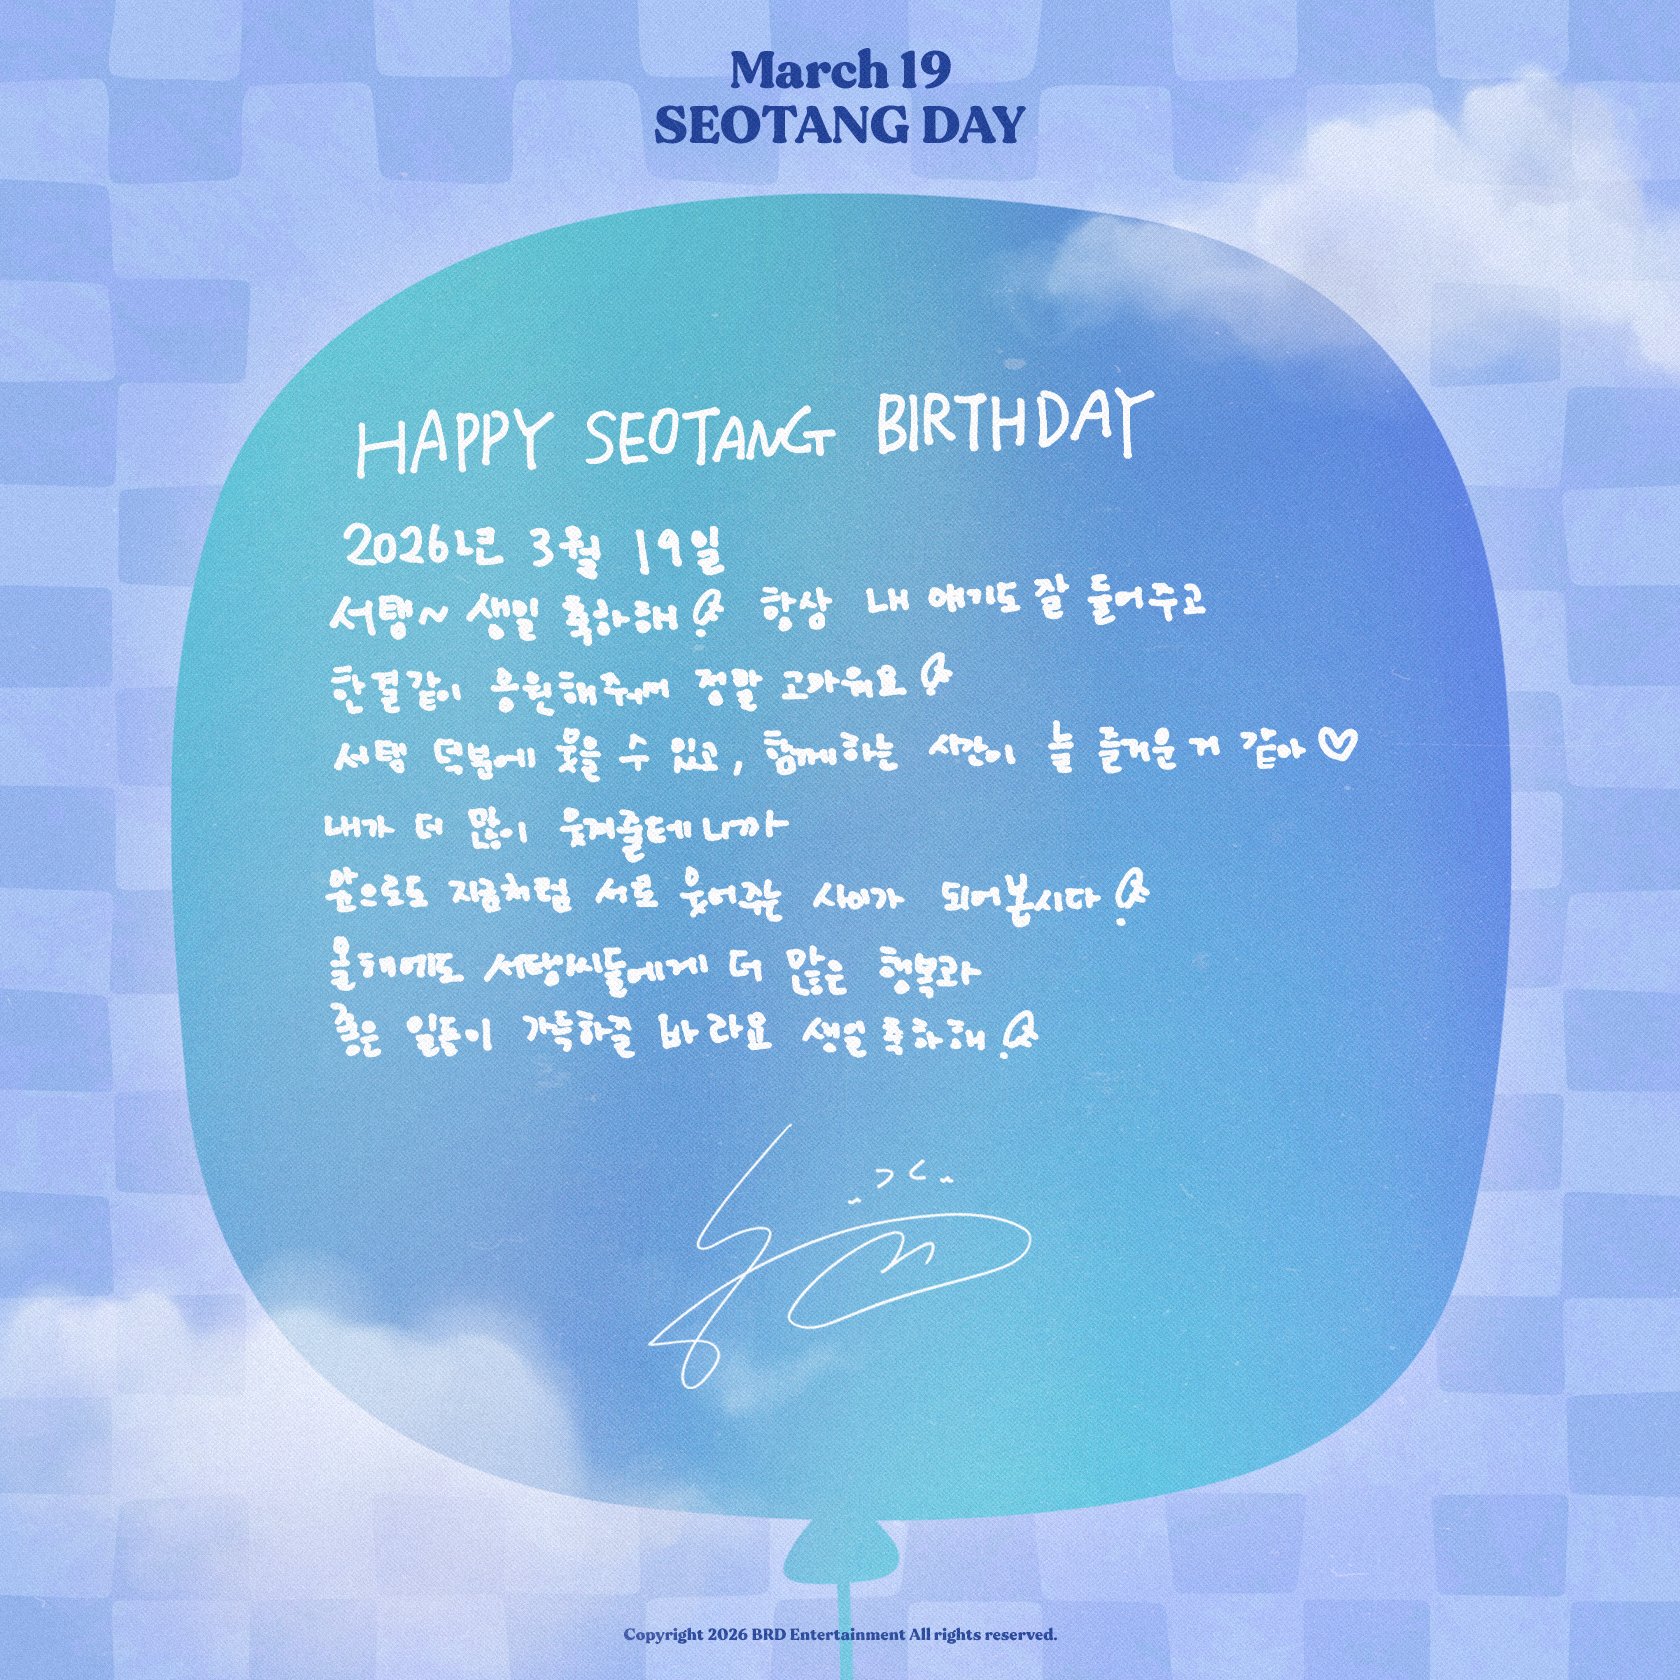 March 19
SEOTANG DAY
HAPPY SEOTANG BIRTHDAY
2026년 3월 19일
서탱~ 생일 축하해 항상 내 얘기도 잘 들어주고
한결같이 응원해줘서 정말 고마워요
서탱 덕분에 웃을 수 있고, 함께하는 시간이 늘 즐거운 거 같아♡
내가 더 많이 웃겨줄테니까
앞으로도 지금처럼 서로 웃어주는 사이가 되어봅시다
올해에도 서탱이씨들에게 더 많은 행복과
좋은 일들이 가득하길 바라요 생일 축하해
Copyright 2026 BRD Entertainment All rights reserved.